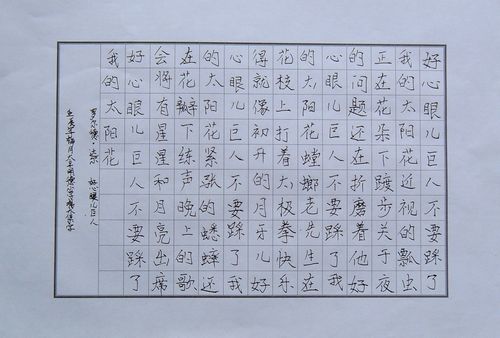 好心眼儿巨人不要踩了
我的太阳花近视的瓢虫
正在花朵下踱步关于夜
的问题还在折磨着他好
心眼儿巨人不要踩了我
的太阳花螳螂老先生在
花枝上打着太极拳快乐
得就像初升的月牙儿好
心眼儿巨人不要踩了我
的太阳花紧张的蟋蟀还
在花瓣下练声晚上的歌
会将有星星和月亮出席
好心眼儿巨人不要踩了
我的太阳花
好心眼儿巨人